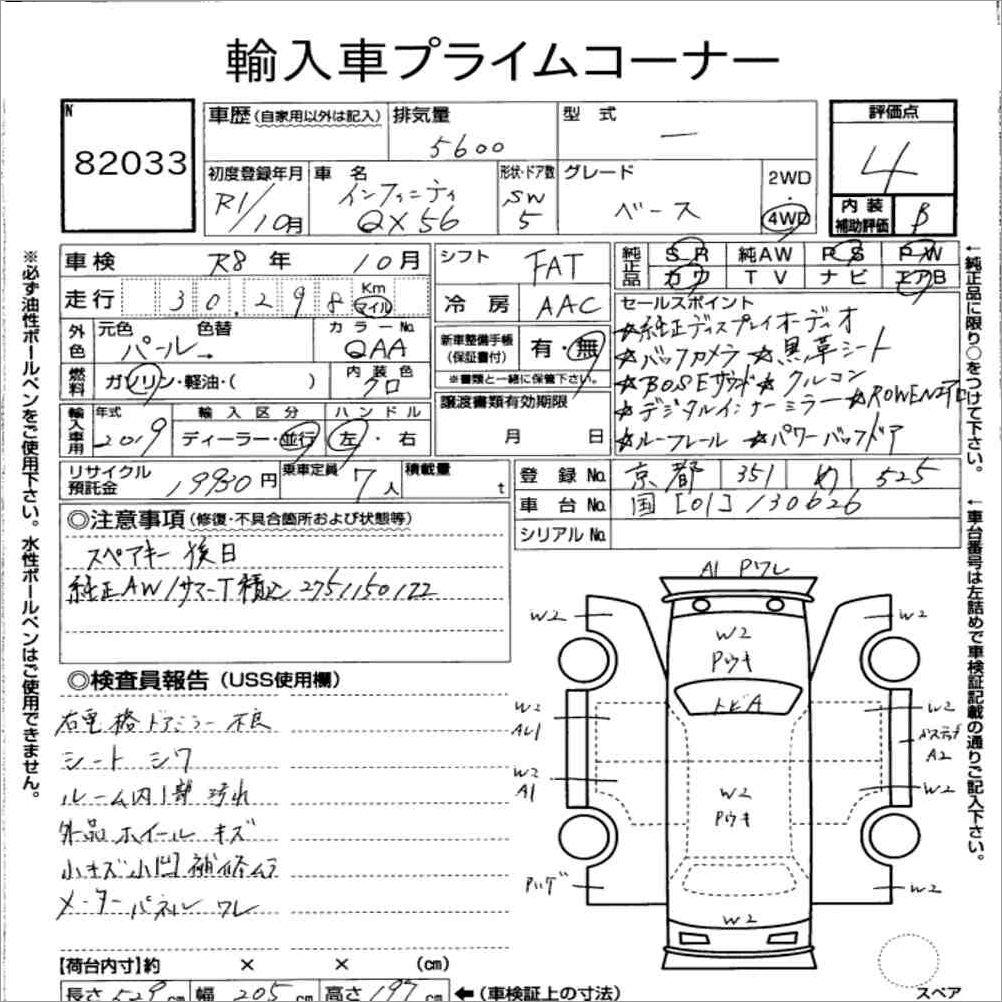 輸入車プライムコーナー
N
82033
車歴 (自家用以外は記入)
排気量
5600
型 式
ー
評価点
4
初度登録年月
R1/10月
車 名
インフィニティ
QX56
形状・ドア数
SW
5
グレード
ベース
2WD
4WD
内 装
補助評価
B
車検 R8 年 10月
シフト FAT
純正品
SR 純AW PS PW
カワ TV ナビ エアB
走行 30,298 Km マイル
冷 房 AAC
セールスポイント
☆純正ディスプレイオーディオ
☆バックカメラ ☆黒革シート
☆BOSEサウンド☆クルコン
☆デジタルインナーミラー
☆ルーフレール ☆パワーバックドア
外色
元色 色替
パール
カラーNo.
QAA
新車整備手帳
(保証書付)
有・無
※書類と一緒に保管下さい。
燃料
ガソリン・軽油・( )
内 装 色
クロ
譲渡書類有効期限
月 日
輸入車用
年式
2019
輸 入 区 分
ディーラー・並行
ハ ン ド ル
左・右
リサイクル
預託金
19930円
乗車定員
7人
積載量
t
登 録 No. 京都 351 め 525
車 台 No. 国[01]130626
シリアルNo.
◎注意事項 (修復・不具合箇所および状態等)
スペアキー 後日
純正AW/サマーT積込 275/50/22
◎検査員報告 (USS使用欄)
右電格ドアミラー不良
シート シワ
ルーム内1部汚れ
外品ホイール キズ
小キズ小凹補修ムラ
メーターパネル ワレ
A1 Pワレ
W2
W2
W2
Pウキ
トビA
W2
AU1
W2
A1
W2
A2
W2
W2
Pウキ
W2
W2
【荷台内寸】約 × × (cm)
長さ 529 cm 幅 205 cm 高さ 197 cm ←(車検証上の寸法)
スペア
※必ず油性ボールペンをご使用下さい。水性ボールペンはご使用できません。
←純正品に限り○をつけて下さい。
←車台番号は左詰めで車検証記載の通りご記入下さい。